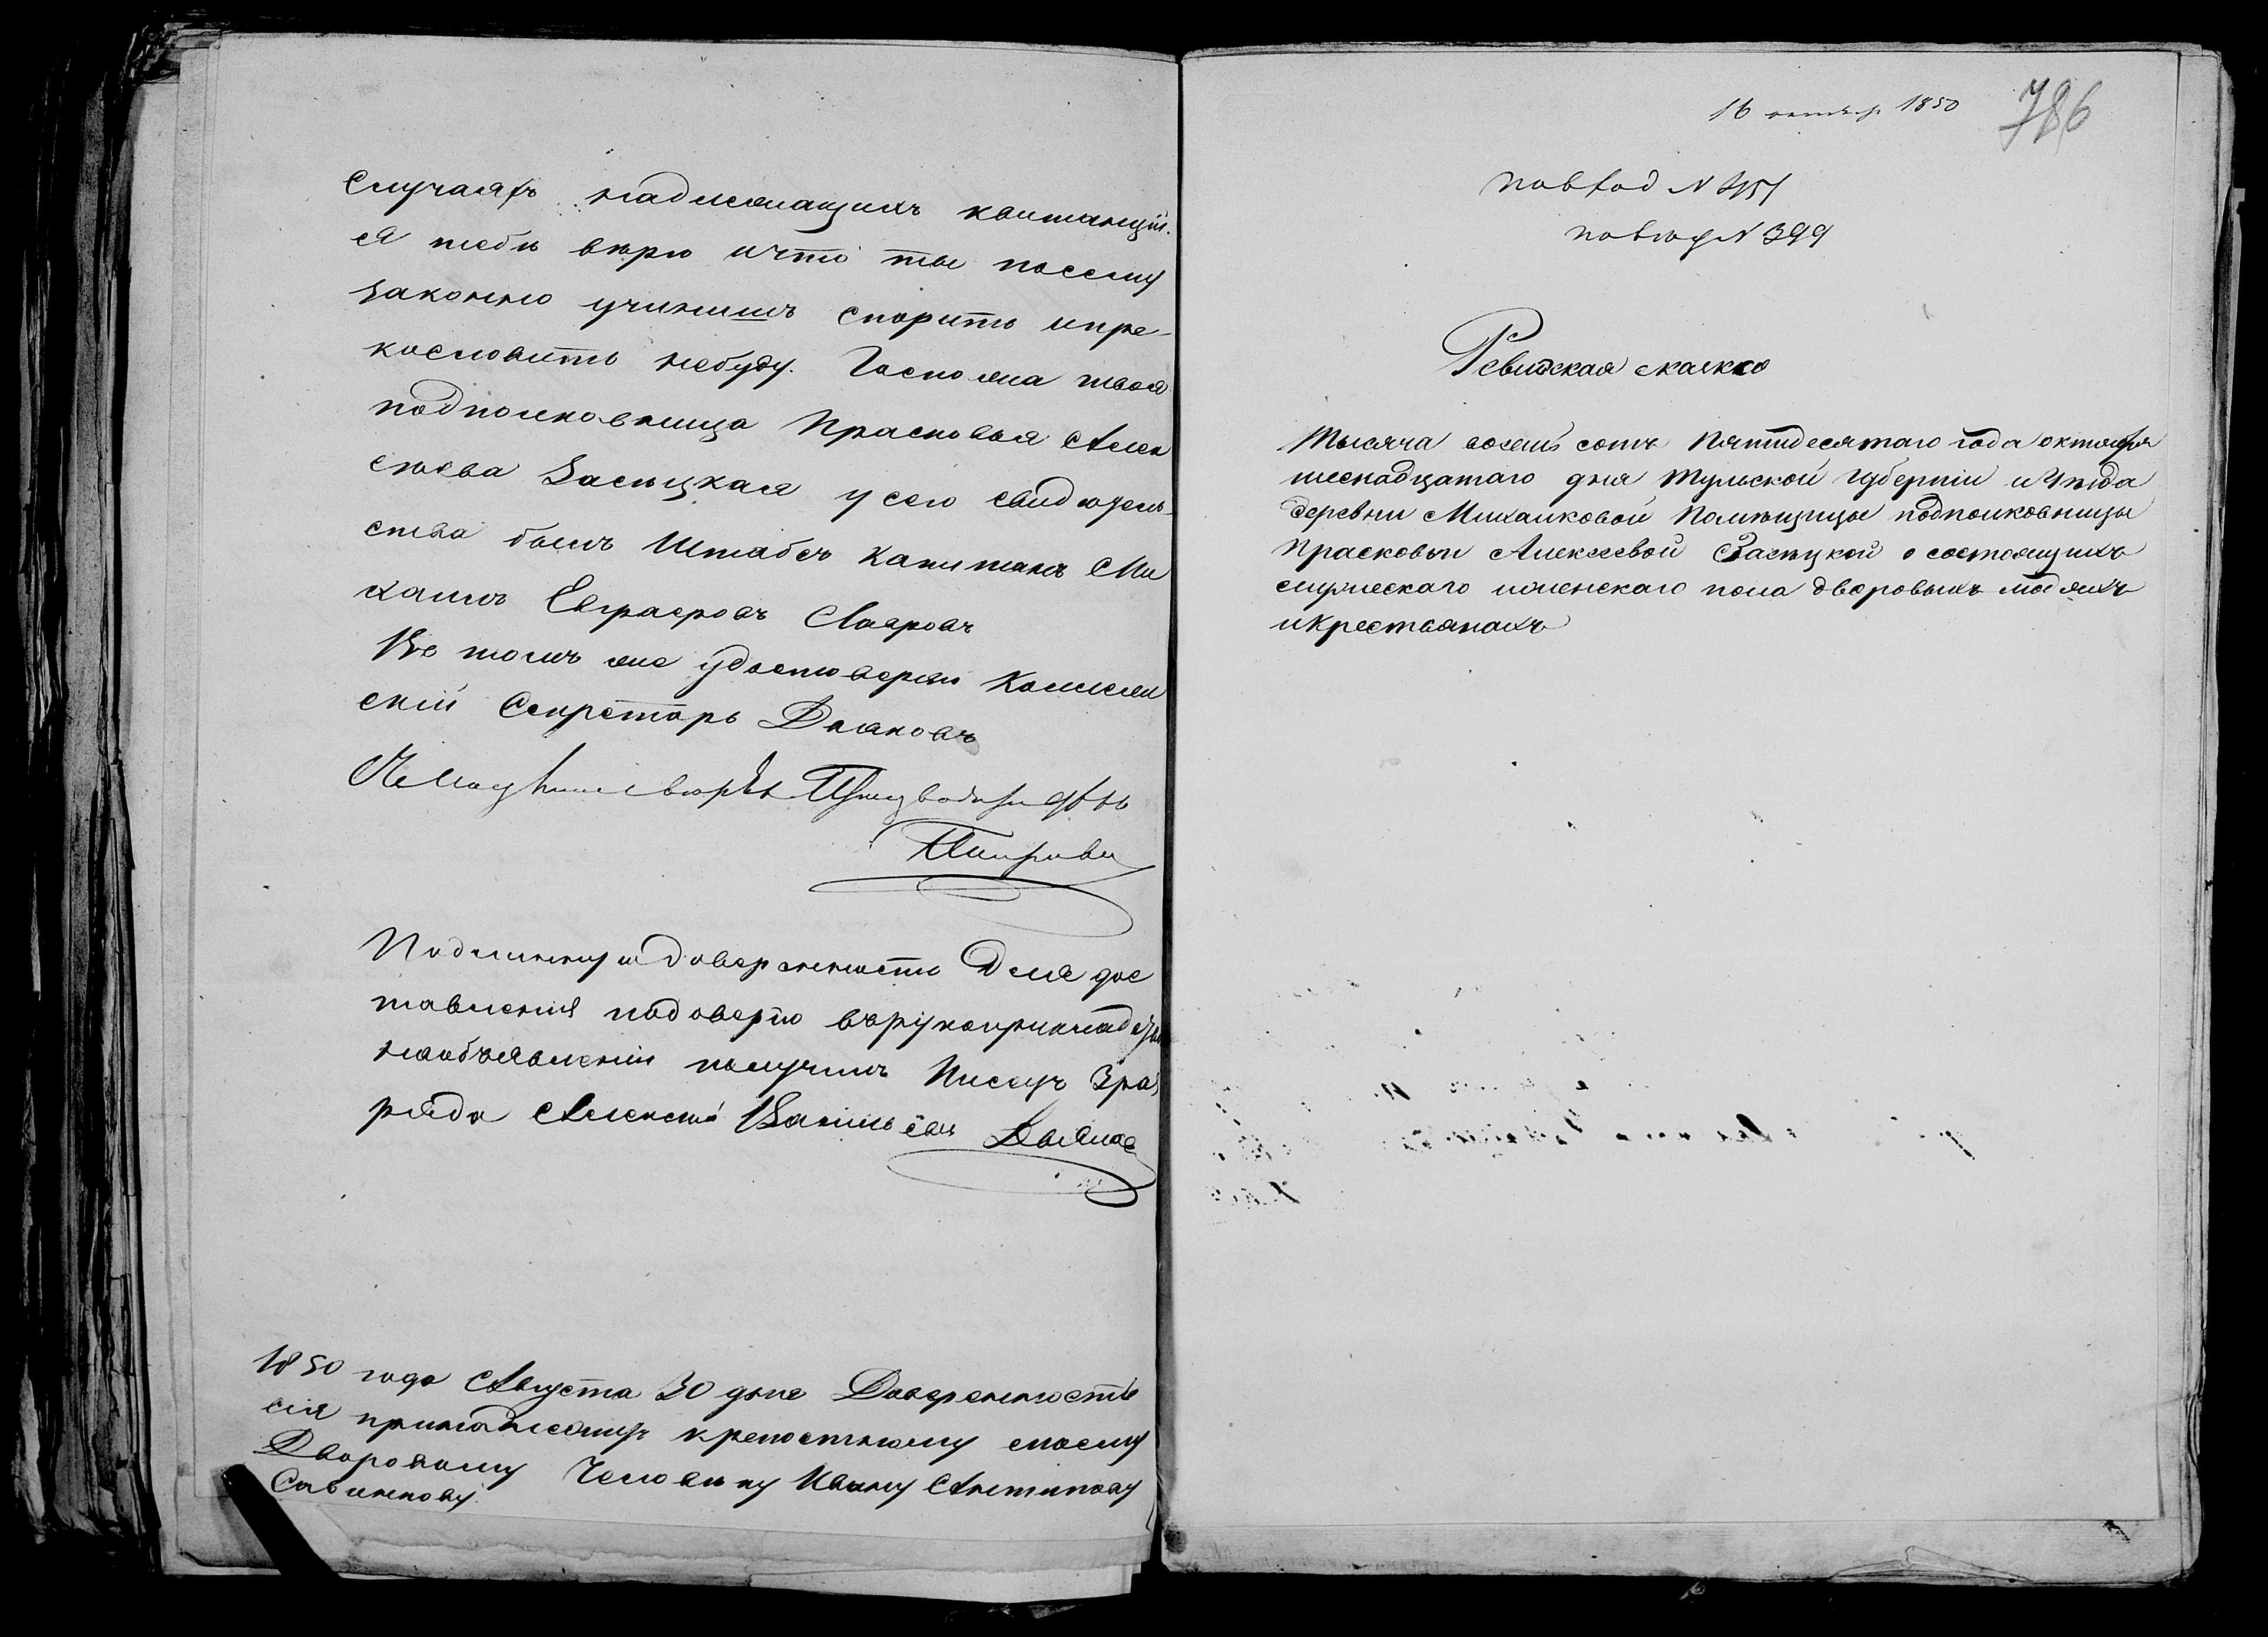 случаяхъ надлежащихъ квитанцiй.
я тебѣ вѣрю и что ты по сему
законно учинишъ спорить и пре-
кословить небуду. Госпожа твоя
подполковница Прасковья Алек
сѣева Засѣцкая у сего свидѣтель-
ства былъ Штабсъ Капитанъ Ми
хаилъ Евграфовъ Лавровъ
Въ томъ же удостоверяю Коллеж
скiй Секретарь Дьяковъ
Подлинную доверенность для дос
тавления по доверiю въ рукоприклад
на объявленiи получилъ Писецъ 3 раз
ряда Алексей Васильевъ
1850 года Августа 30 дня Доверенность
сiя принадлежитъ крепостному моему
Дворовому Человѣку Ивану Антипову
Савинкову
16 октяб. 1850
786
по вход N
N 399
Ревизская сказка
Тысяча восемь сотъ пятидесятаго года октября
шеснадцатаго дня Тульской губернiи и уѣзда
деревни Михалковой Помѣщицы подполковницы
Прасковьи Алексеевой Засѣцкой о состоящихъ
мужескаго и женскаго пола дворовыхъ людяхъ
и крестьянахъ